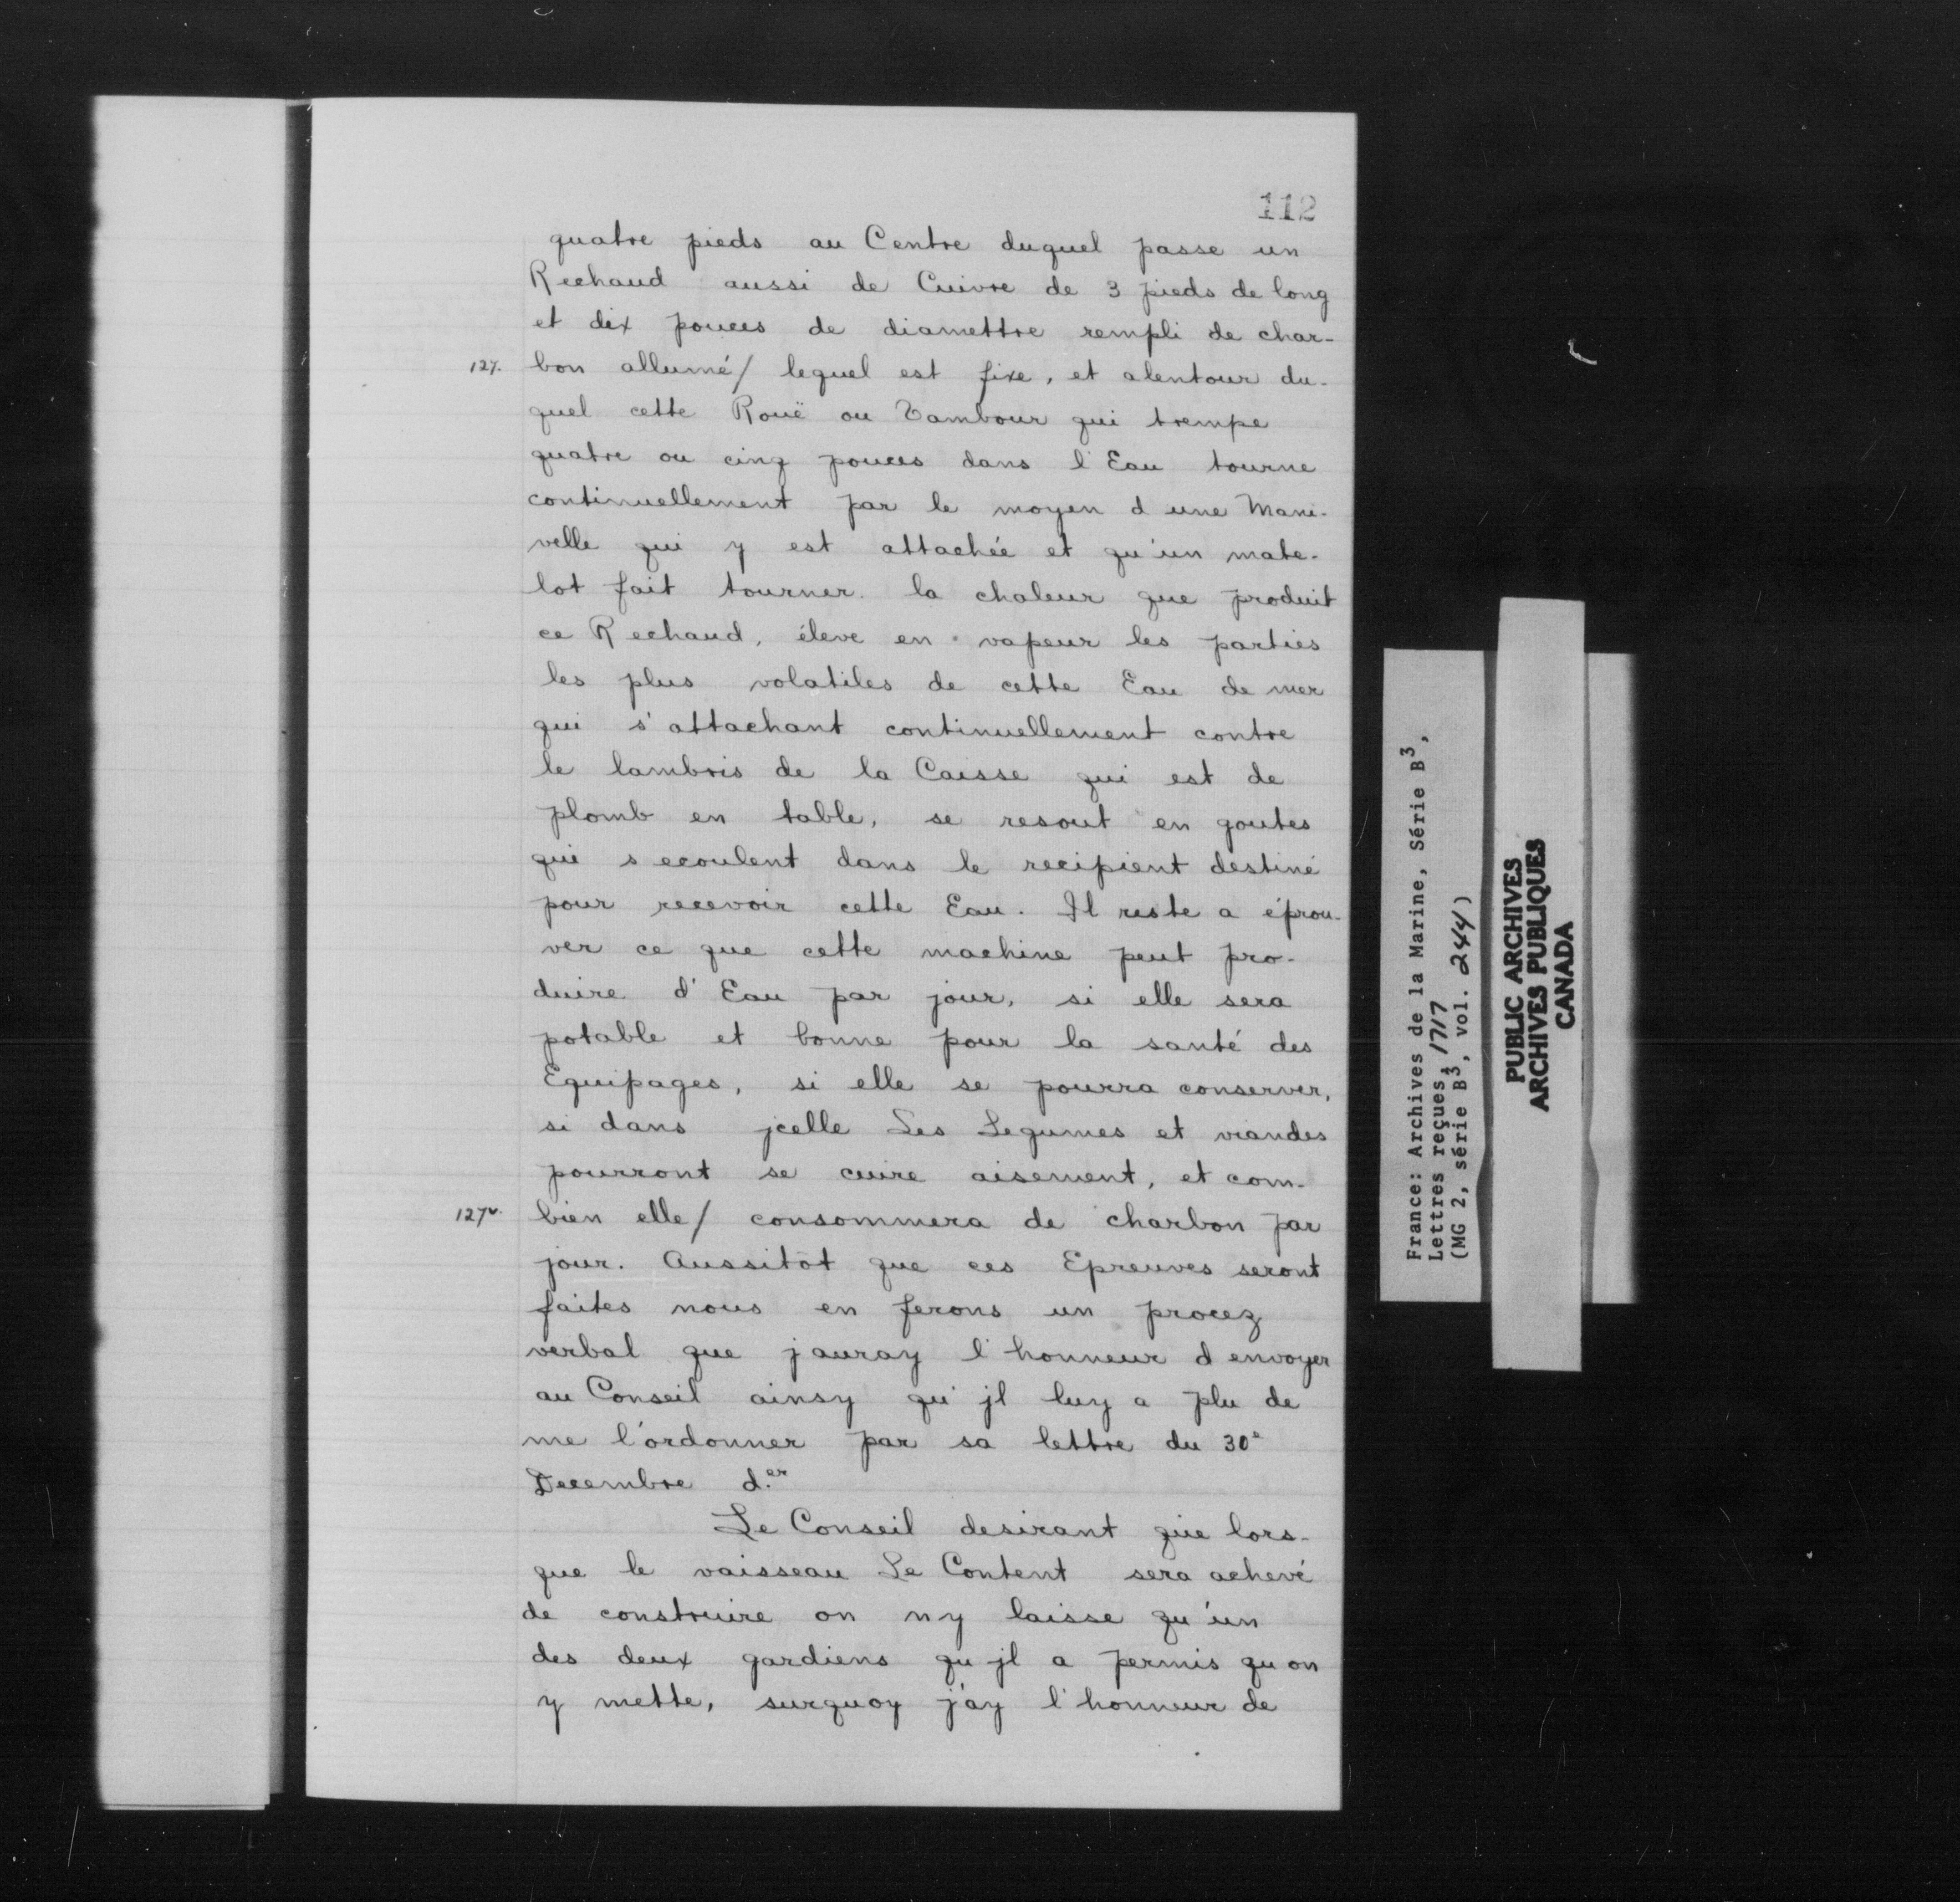 112
quatre pieds au Centre duquel passe un
Rechaud aussi de Cuivre de 3 pieds de long
et dix pouces de diamettre rempli de char-
127. bon allumé/ lequel est fixe, et alentour du-
quel cette Rouë ou Tambour qui trempe
quatre ou cinq pouces dans l'Eau tourne
continuellement par le moyen d une Mani-
velle qui y est attachée et qu'un mate-
lot fait tourner. la chaleur que produit
ce Rechaud, éleve en vapeur les parties
les plus volatiles de cette Eau de mer
qui s'attachant continuellement contre
le lambris de la Caisse qui est de
plomb en table, se resout en goutes
qui s ecoulent dans le recipient destiné
pour recevoir cette Eau. Il reste a éprou-
ver ce que cette machine peut pro-
duire d'Eau par jour, si elle sera
potable et bonne pour la santé des
Equipages, si elle se pourra conserver,
si dans jcelle Les Legumes et viandes
pourront se cuire aisement, et com-
127v. bien elle/ consommera de charbon par
jour. Aussitôt que ces Epreuves seront
faites nous en ferons un procez
verbal que jauray l'honneur d envoyer
au Conseil ainsy qu'jl luy a plu de
me l'ordonner par sa lettre du 30e
Decembre d.er
Le Conseil desirant que lors-
que le vaisseau Le Content sera achevé
de construire on ny laisse qu'un
des deux gardiens qu jl a permis qu on
y mette, surquoy j'ay l'honneur de
France: Archives de la Marine, Série B3,
Lettres reçues, 1717
(MG 2, série B3, vol. 244)
PUBLIC ARCHIVES
ARCHIVES PUBLIQUES
CANADA